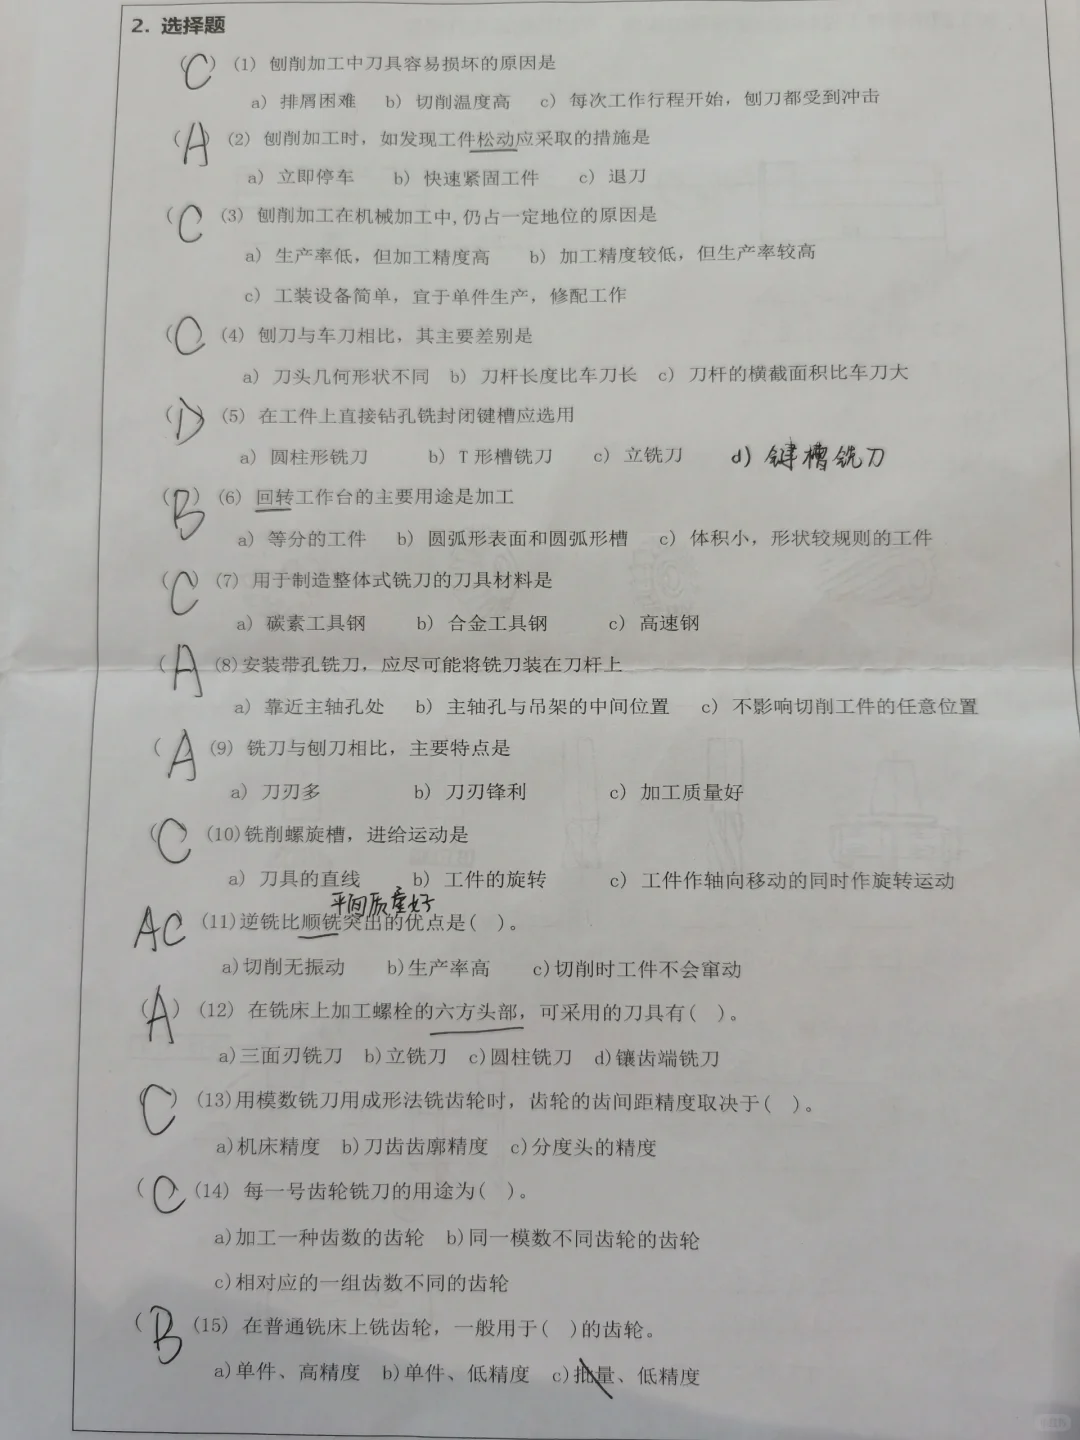 2. 选择题
(C) (1) 刨削加工中刀具容易损坏的原因是
a) 排屑困难 b) 切削温度高 c) 每次工作行程开始，刨刀都受到冲击
(A) (2) 刨削加工时，如发现工件松动应采取的措施是
a) 立即停车 b) 快速紧固工件 c) 退刀
(C (3) 刨削加工在机械加工中,仍占一定地位的原因是
a) 生产率低，但加工精度高 b) 加工精度较低，但生产率较高
c) 工装设备简单，宜于单件生产，修配工作
(C (4) 刨刀与车刀相比，其主要差别是
a) 刀头几何形状不同 b) 刀杆长度比车刀长 c) 刀杆的横截面积比车刀大
(D) (5) 在工件上直接钻孔铣封闭键槽应选用
a) 圆柱形铣刀 b) T形槽铣刀 c) 立铣刀 d) 键槽铣刀
(B) (6) 回转工作台的主要用途是加工
a) 等分的工件 b) 圆弧形表面和圆弧形槽 c) 体积小，形状较规则的工件
(C) (7) 用于制造整体式铣刀的刀具材料是
a) 碳素工具钢 b) 合金工具钢 c) 高速钢
(A (8)安装带孔铣刀，应尽可能将铣刀装在刀杆上
a) 靠近主轴孔处 b) 主轴孔与吊架的中间位置 c) 不影响切削工件的任意位置
(A (9) 铣刀与刨刀相比，主要特点是
a) 刀刃多 b) 刀刃锋利 c) 加工质量好
(C (10)铣削螺旋槽，进给运动是
a) 刀具的直线 b) 工件的旋转 c) 工件作轴向移动的同时作旋转运动
质量好
AC (11)逆铣比顺铣突出的优点是( )。
a)切削无振动 b)生产率高 c)切削时工件不会窜动
(A) (12) 在铣床上加工螺栓的六方头部，可采用的刀具有( )。
a)三面刃铣刀 b)立铣刀 c)圆柱铣刀 d)镶齿端铣刀
C) (13)用模数铣刀用成形法铣齿轮时，齿轮的齿间距精度取决于( )。
a)机床精度 b)刀齿齿廓精度 c)分度头的精度
(C) (14) 每一号齿轮铣刀的用途为( )。
a)加工一种齿数的齿轮 b)同一模数不同齿轮的齿轮
c)相对应的一组齿数不同的齿轮
(B) (15) 在普通铣床上铣齿轮，一般用于( )的齿轮。
a)单件、高精度 b)单件、低精度 c)批量、低精度